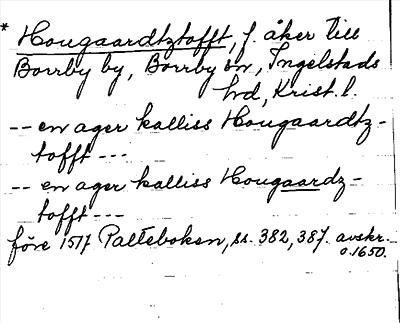 * Hougaardtztofft, f. åker till
Borrby by, Borrby sn, Ingelstads
hd, Krist. l.
-- en ager kalliss Hougaardtz-
tofft ---
-- en ager kalliss Hougaardz-
tofft ---
före 1517 Palteboken, ss. 382, 387. avskr.
o. 1650.